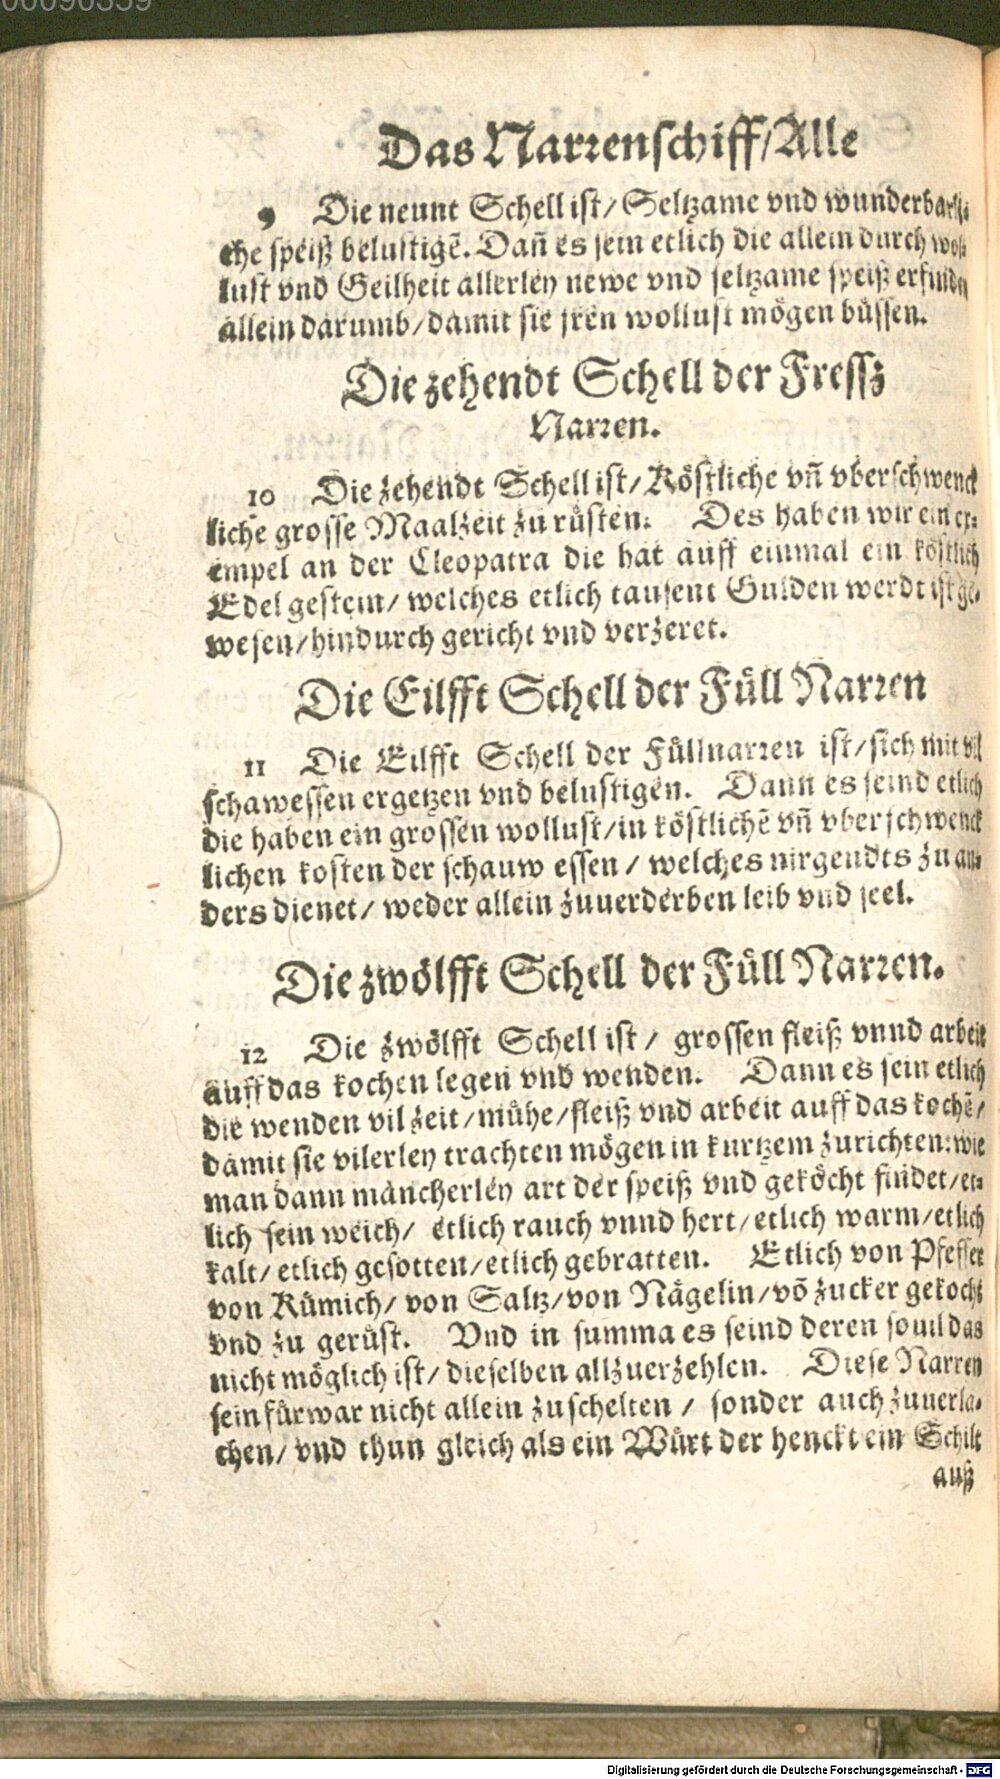 00090359
Das Narrenschiff/Alle
9 Die neunt Schell ist/ Seltzame vnd wunderbarli-
che speiß belustigẽ. Dañ es sein etlich die allein durch wol-
lust vnd Geilheit allerley newe vnd seltzame speiß erfinden
allein darumb/ damit sie jren wollust mögen büssen.
Die zehendt Schell der Fressz
Narren.
10 Die zehendt Schell ist/ Köstliche vñ vberschwenck
liche grosse Maalzeit zu rüsten. Des haben wir ein ex-
empel an der Cleopatra die hat auff einmal ein köstlich
Edel gestein/ welches etlich tausent Gulden werdt ist ge-
wesen/ hindurch gericht vnd verzeret.
Die Eilfft Schell der Füll Narren
11 Die Eilfft Schell der Füllnarren ist/ sich mit vil
schawessen ergetzen vnd belustigen. Dann es seind etlich
die haben ein grossen wollust/ in köstlichẽ vñ vberschwenck
lichen kosten der schauw essen/ welches nirgendts zu an-
ders dienet/ weder allein zuuerderben leib vnd seel.
Die zwölfft Schell der Füll Narren.
12 Die zwölfft Schell ist/ grossen fleiß vnnd arbeit
auff das kochen legen vnd wenden. Dann es sein etlich
die wenden vil zeit/ mühe/ fleiß vnd arbeit auff das kochẽ/
damit sie vilerley trachten mögen in kurtzem zurichten: wie
man dann mancherley art der speiß vnd geköcht findet/ et-
lich sein weich/ etlich rauch vnnd hert/ etlich warm/ etlich
kalt/ etlich gesotten/ etlich gebratten. Etlich von Pfeffer
von Kümich/ von Saltz/ von Nägelin/ võ zucker gekocht
vnd zu gerüst. Vnd in summa es seind deren souil das
nicht möglich ist/ dieselben allzuerzehlen. Diese Narren
sein fürwar nicht allein zuschelten/ sonder auch zuuerla-
chen/ vnd thun gleich als ein Würt der henckt ein Schilt
auß
Digitalisierung gefördert durch die Deutsche Forschungsgemeinschaft - DFG